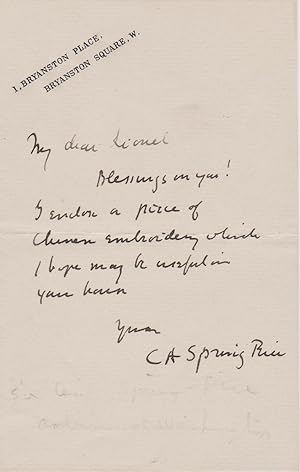 1, BRYANSTON PLACE,
BRYANSTON SQUARE, W.
My dear Lionel
Blessings on you!
I enclose a piece of
Chinese embroidery which
I hope may be useful in
your house
Yours
C A Spring Rice
Sir Cecil Spring-Rice
Washington